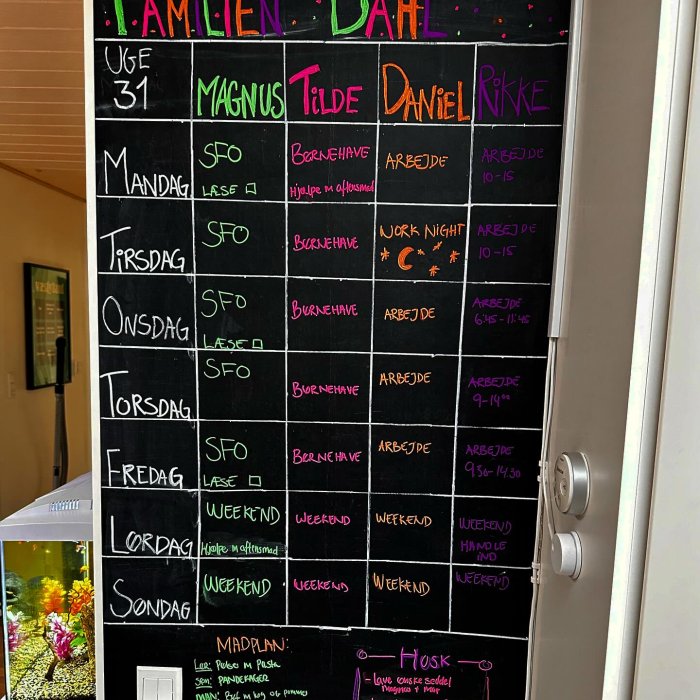 FAMILIEN DAHL
UGE
31
MAGNUS TILDE DANIEL RIKKE
MANDAG
SFO
LÆSE
BØRNEHAVE
Hjælpe m aftensmad
ARBEJDE
ARBEJDE
10-15
TIRSDAG
SFO
BØRNEHAVE
WORK NIGHT
ARBEJDE
10-15
ONSDAG
SFO
LÆSE
BØRNEHAVE
ARBEJDE
ARBEJDE
6:45-11:45
TORSDAG
SFO
BØRNEHAVE
ARBEJDE
ARBEJDE
9-14⁰⁰
FREDAG
SFO
LÆSE
BØRNEHAVE
ARBEJDE
ARBEJDE
9.30-14.30
LØRDAG
WEEKEND
Hjælpe m aftensmad
WEEKEND
WEEKEND
WEEKEND
HANDLE
IND
SØNDAG
WEEKEND
WEEKEND
WEEKEND
WEEKEND
MADPLAN:
Lør: Pølse m Pasta
Søn: PANDEKAGER
MAN:
HUSK
- Lave ønske seddel
magnus + mor